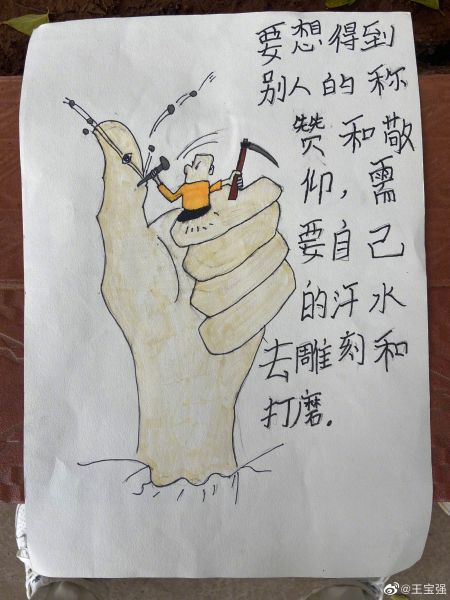 要想得到
别人的称
赞和敬
仰，需
要自己
的汗水
去雕刻和
打磨。
@王宝强